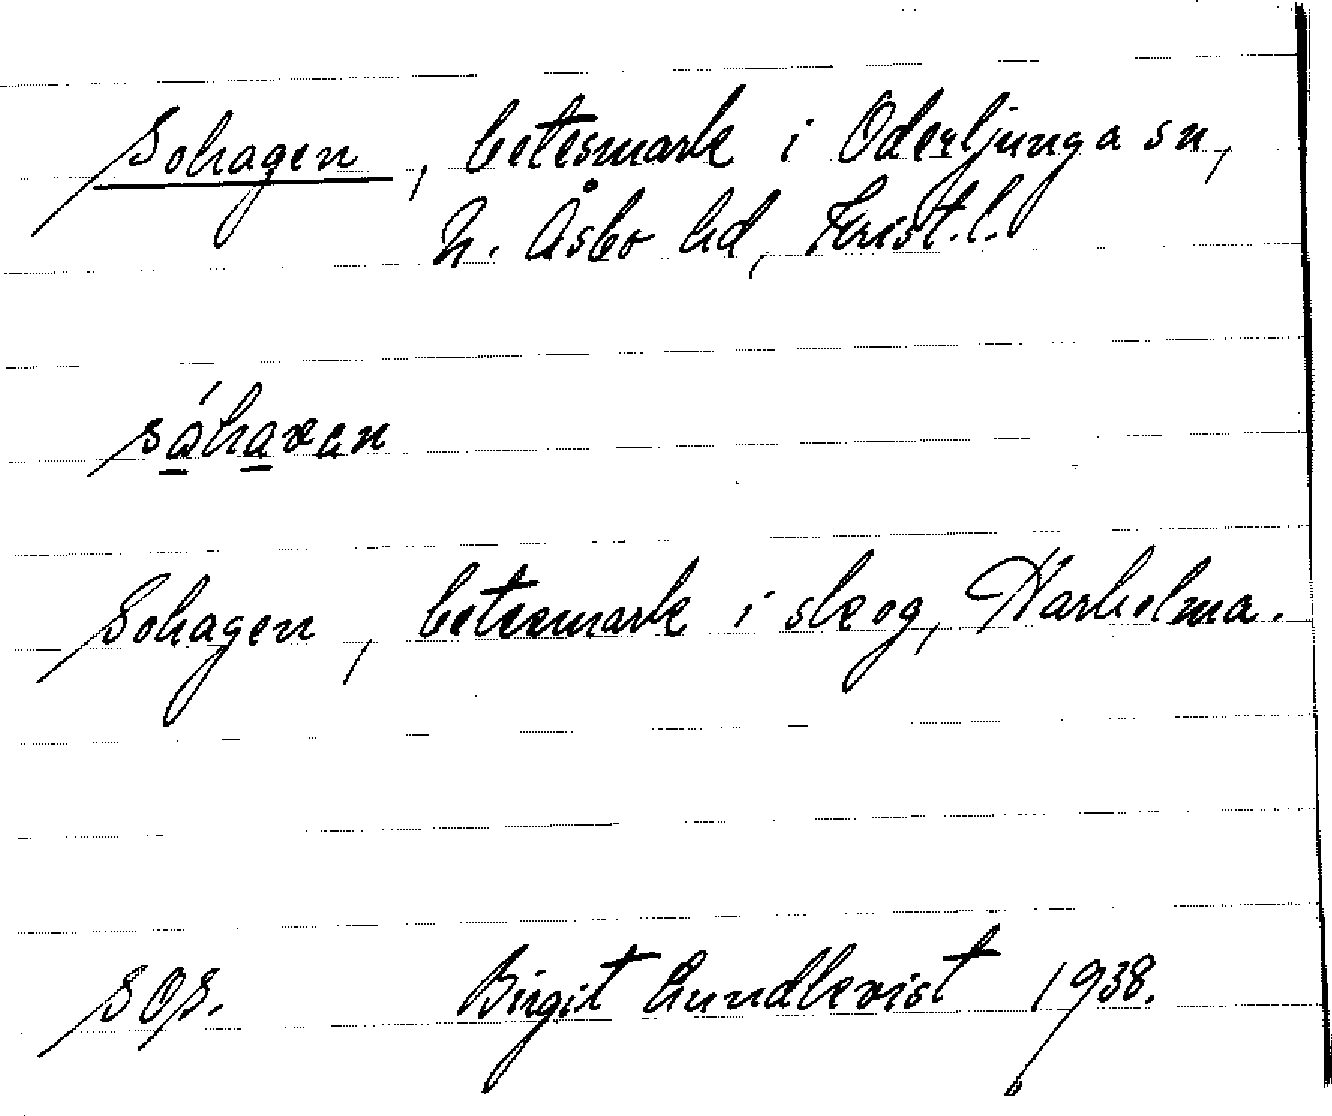 Sohagen, betesmark i Oderljunga sn,
N. Åsbo hd, Krist. l.
sóhavan
Sohagen, betesmark i skog, Harholma.
SOS. Birgit Lundkvist 1938.